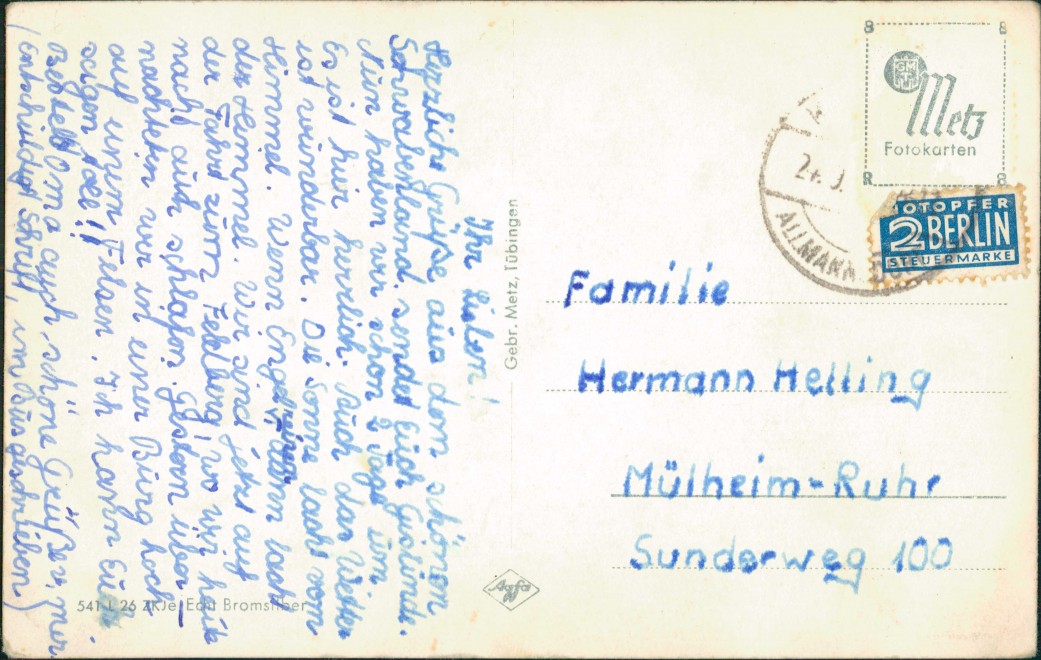 Ihr Lieben!
Herzliche Grüße aus dem schönen
Schwabenland sendet Euch Gislinde.
Nun haben wir schon 2 Tage um.
Es ist hier herrlich. Auch das Wetter
ist wunderbar. Die Sonne lacht vom
Himmel. Wenn Engel reisen dann lacht
der Himmel. Wir sind jetzt auf
der Fahrt zum Feldberg, wo wir heute
nacht auch schlafen. Gestern über-
nachteten wir in einer Burg hoch
auf einem Felsen. Ich harre Euch
sagen soll!!
Bestellt Oma auch schöne Grüße v. mir.
(Entschuldigt Schrift, im Bus geschrieben)
Gebr. Metz, Tübingen
541 L 26 ZKJe Echt Bromsilber
Agfa
8 8
GM
T
Metz
Fotokarten
R 8
2 . 9.
ALLMANN
NOTOPFER
2 BERLIN
STEUERMARKE
Familie
Hermann Helling
Mülheim-Ruhr
Sunderweg 100